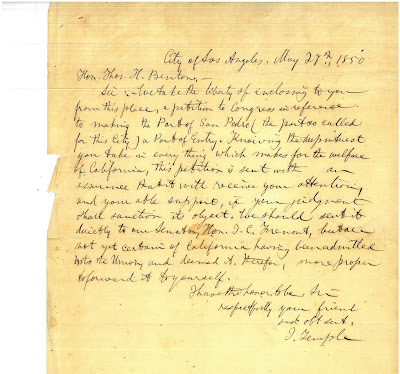 City of Los Angeles, May 27th, 1850
Hon. Thos. H. Benton,—
Sir:—We take the liberty of enclosing to you
from this place, a petition to Congress in reference
to making the Port of San Pedro (the port so called
for this City) a Port of Entry. Knowing the deep interest
you take in every thing which makes for the welfare
of California, this petition is sent with an
assurance that it will receive your attention,
and your able support, if your judgment
shall sanction its object. We should sent it
directly to our Senator, Hon. J. C. Fremont, but are
not yet certain of California having been admitted
into the Union, and deemed it, therefor, more proper
to forward it to yourself.
I have the honor to be, Sir
respectfully your friend
and obt servt,
J. Temple